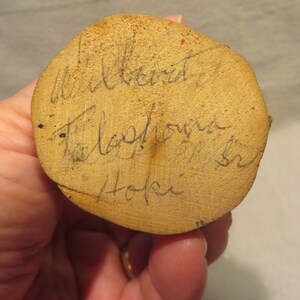 Wilbert
Talashoma Sr
Hopi